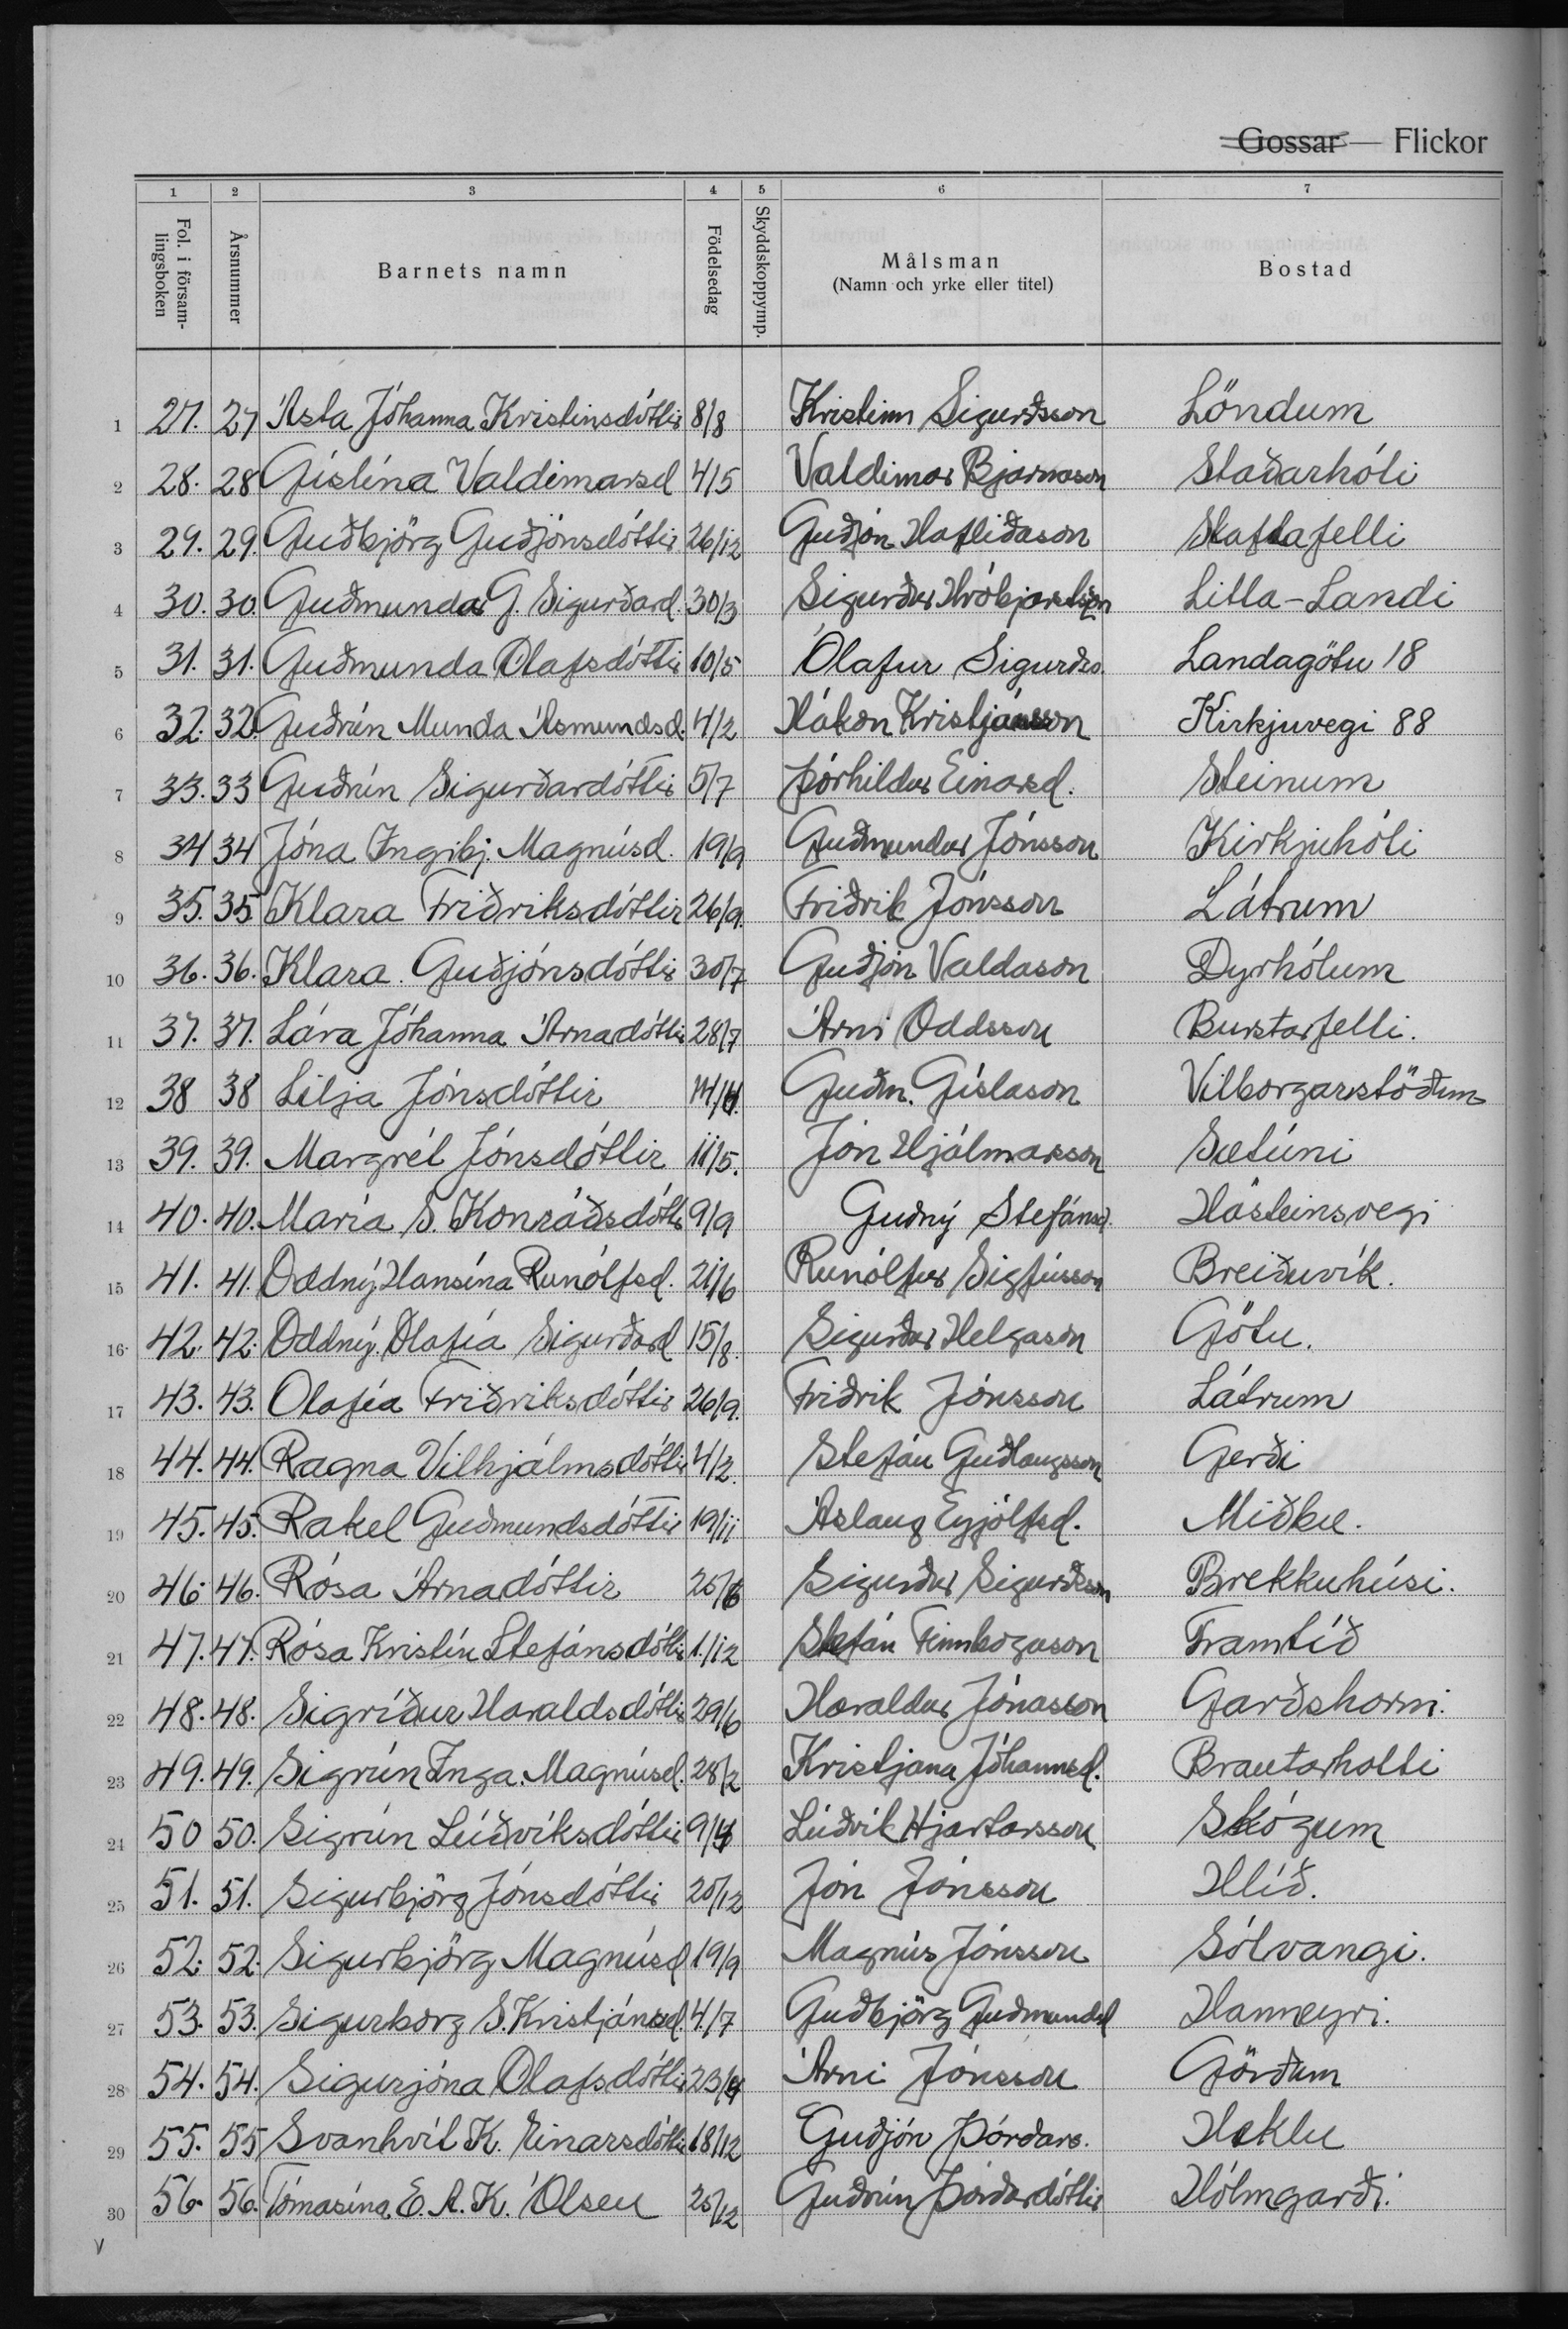 Gossar — Flickor
1 2 3 4 5 6 7
Fol. i församlingsboken Årsnummer Barnets namn Födelsedag Skyddskoppymp. Målsman (Namn och yrke eller titel) Bostad
1 27. 27 Ásta Jóhanna Kristinsdóttir 8/8 Kristinn Sigurðsson Löndum
2 28. 28 Gíslína Valdimarsd 4/5 Valdimar Bjarnason Staðarhóli
3 29. 29. Guðbjörg Guðjónsdóttir 26/12 Guðjón Hafliðason Skaftafelli
4 30. 30. Guðmunda G. Sigurðard. 30/3 Sigurður Hróbjartsson Litla-Landi
5 31. 31. Guðmunda Ólafsdóttir 10/5 Ólafur Sigurðss. Landagötu 18
6 32. 32. Guðrún Munda Ásmundsd. 4/2 Hákon Kristjánsson Kirkjuvegi 88
7 33. 33 Guðrún Sigurðardóttir 5/7 Þórhildur Einarsd. Steinum
8 34 34 Jóna Ingibj. Magnúsd. 19/9 Guðmundur Jónsson Kirkjuhóli
9 35. 35 Klara Friðriksdóttir 26/9. Friðrik Jónsson Látrum
10 36. 36. Klara. Guðjónsdóttir 30/7 Guðjón Valdason Dyrhólum
11 37. 37. Lára Jóhanna Árnadóttir 28/7 Árni Oddsson Burstarfelli.
12 38 38 Lilja Jónsdóttir Guðm. Gíslason Vilborgarstöðum
13 39. 39. Margrét Jónsdóttir 11/5. Jón Hjálmarsson Sætúni
14 40. 40. María S. Konráðsdóttir 9/9 Guðný Stefánsd. Hásteinsvegi
15 41. 41. Oddný Hansína Runólfsd. 21/6 Runólfur Sigfússon Breiðuvík.
16 42. 42. Oddný Ólafía Sigurðard 15/8. Sigurður Helgason Götu.
17 43. 43. Ólafía Friðriksdóttir 26/9. Friðrik Jónsson Látrum
18 44. 44. Ragna Vilhjálmsdóttir 4/2. Stefán Guðlaugsson Gerði
19 45. 45. Rakel Guðmundsdóttir 19/11 Áslaug Eyjólfsd. Miðbæ.
20 46. 46. Rósa Árnadóttir 25/6 Sigurður Sigurðsson Brekkuhúsi.
21 47. 47. Rósa Kristín Stefánsdóttir 1./12 Stefán Finnbogason Framtíð
22 48. 48. Sigríður Haraldsdóttir 29/6 Haraldur Jónasson Garðshorni.
23 49. 49. Sigrún Inga. Magnúsd. 28/2 Kristjana Jóhannsd. Brautarholti
24 50 50. Sigrún Lúðvíksdóttir Lúðvík Hjartarsson Skógum
25 51. 51. Sigurbjörg Jónsdóttir 25/12 Jón Jónsson Hlíð.
26 52. 52. Sigurbjörg Magnúsd 19/9 Magnús Jónsson Sólvangi.
27 53. 53. Sigurborg S. Kristjánsd. 4./7 Guðbjörg Guðmundsd Hanneyri.
28 54. 54. Sigurjóna Ólafsdóttir 23/4 Árni Jónsson Görðum
29 55. 55 Svanhvít K. Einarsdóttir 18/12 Guðjón Þórðars. Heklu
30 56. 56. Tómasína E. A. K. Olsen 25/12 Guðrún Þórðardóttir Hólmgarði.